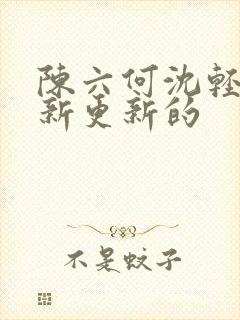 陳六何沈輕
新更新的
不是蚊子